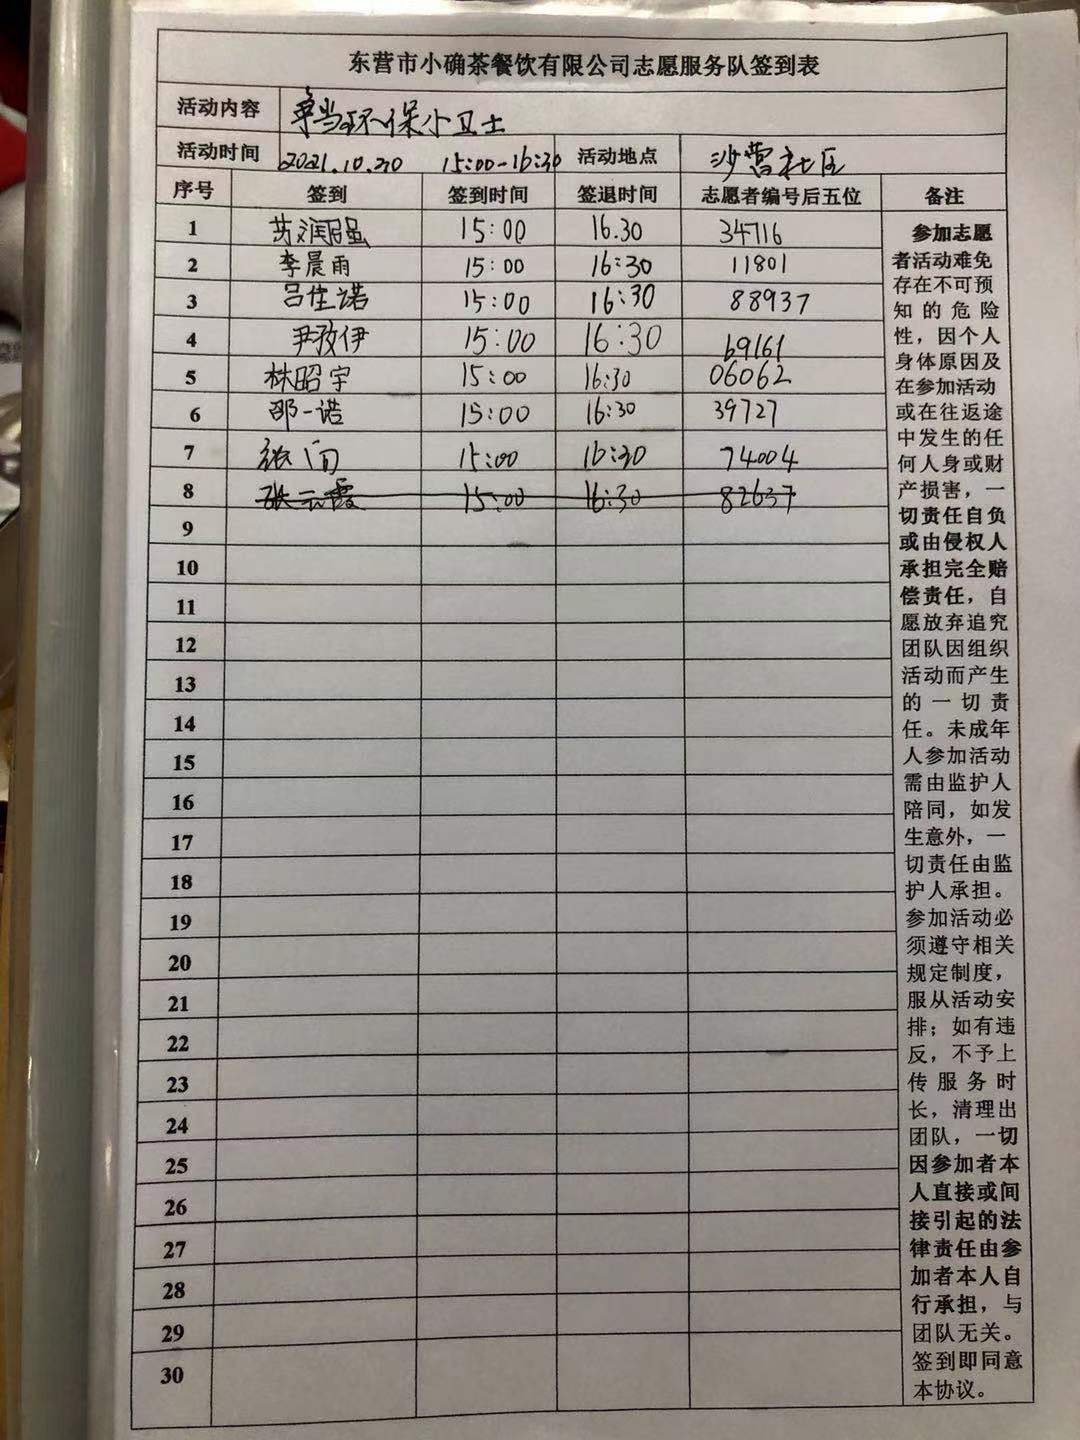 东营市小确茶餐饮有限公司志愿服务队签到表
活动内容 争当环保小卫士
活动时间 2021.10.20 15:00-16:30 活动地点 沙营社区
序号 签到 签到时间 签退时间 志愿者编号后五位 备注
1 苏润强 15:00 16.30 34716
2 李晨雨 15:00 16:30 11801
3 吕佳诺 15:00 16:30 88937
4 尹孜伊 15:00 16:30 69161
5 林昭宇 15:00 16:30 06062
6 邵一诺 15:00 16:30 39727
7 张 15:00 16:30 74004
8 张云霞 15:00 16:30 82637
9
10
11
12
13
14
15
16
17
18
19
20
21
22
23
24
25
26
27
28
29
30
参加志愿
者活动难免
存在不可预
知的危险
性，因个人
身体原因及
在参加活动
或在往返途
中发生的任
何人身或财
产损害，一
切责任自负
或由侵权人
承担完全赔
偿责任，自
愿放弃追究
团队因组织
活动而产生
的一切责
任。未成年
人参加活动
需由监护人
陪同，如发
生意外，一
切责任由监
护人承担。
参加活动必
须遵守相关
规定制度，
服从活动安
排；如有违
反，不予上
传服务时
长，清理出
团队，一切
因参加者本
人直接或间
接引起的法
律责任由参
加者本人自
行承担，与
团队无关。
签到即同意
本协议。